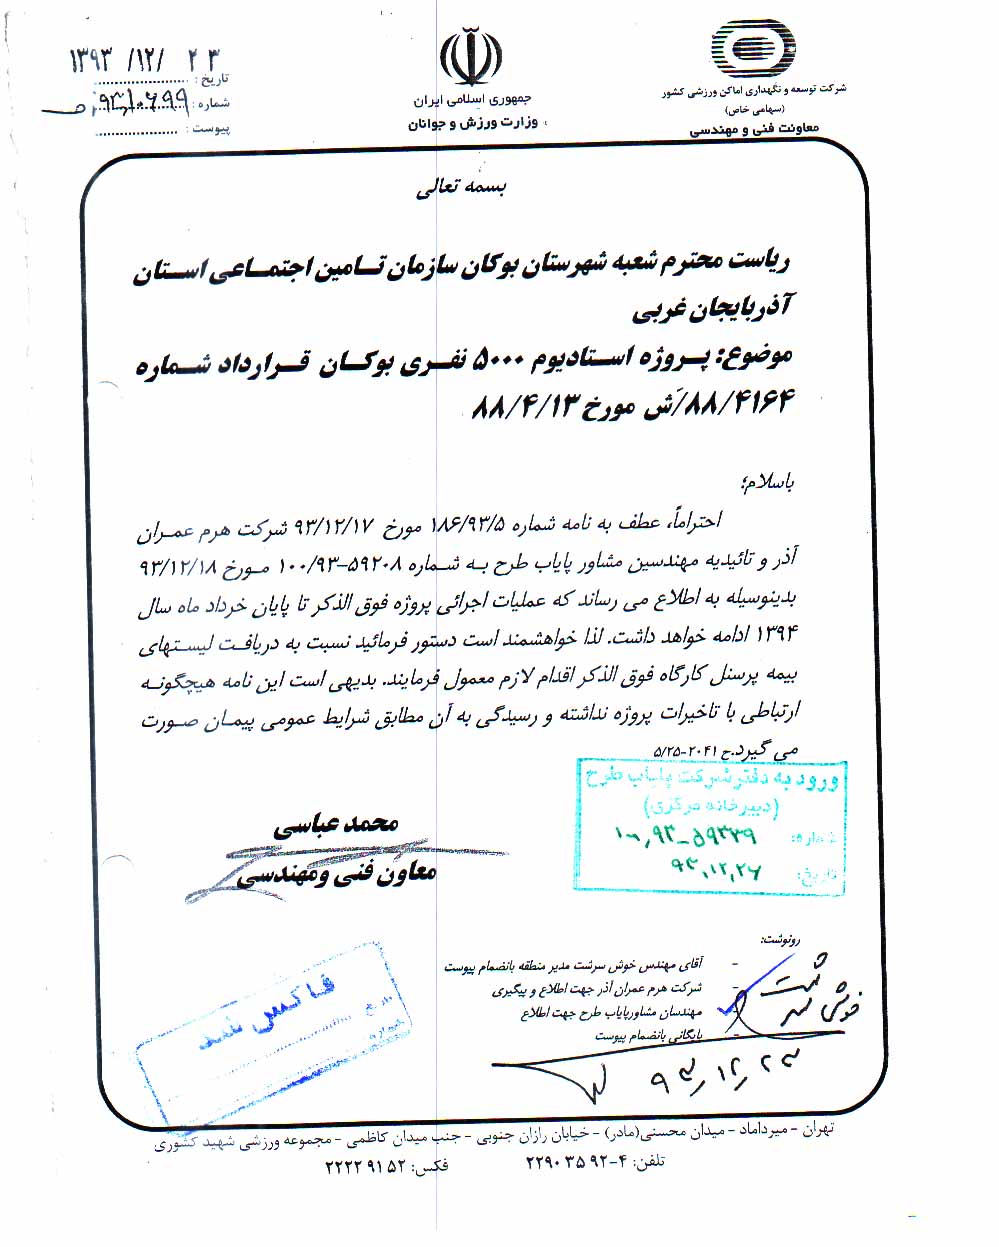 ۱۳۹۳ /۱۲/ ۲۳
تاریخ :
شماره :
پیوست :
جمهوری اسلامی ایران
وزارت ورزش و جوانان
شرکت توسعه و نگهداری اماکن ورزشی کشور
(سهامی خاص)
معاونت فنی و مهندسی
بسمه تعالی
ریاست محترم شعبه شهرستان بوکان سازمان تامین اجتماعی استان
آذربایجان غربی
موضوع: پروژه استادیوم ۵۰۰۰ نفری بوکان قرارداد شماره
۸۸/۴۱۶۴/ش مورخ ۸۸/۴/۱۳
باسلام؛
احتراماً، عطف به نامه شماره ۱۸۶/۹۳/۵ مورخ ۹۳/۱۲/۱۷ شرکت هرم عمران
آذر و تائیدیه مهندسین مشاور پایاب طرح به شماره ۵۹۲۰۸-۱۰۰/۹۳ مورخ ۹۳/۱۲/۱۸
بدینوسیله به اطلاع می رساند که عملیات اجرائی پروژه فوق الذکر تا پایان خرداد ماه سال
۱۳۹۴ ادامه خواهد داشت. لذا خواهشمند است دستور فرمائید نسبت به دریافت لیستهای
بیمه پرسنل کارگاه فوق الذکر اقدام لازم معمول فرمایند. بدیهی است این نامه هیچگونه
ارتباطی با تاخیرات پروژه نداشته و رسیدگی به آن مطابق شرایط عمومی پیمان صورت
می گیرد.ح ۲۰۴۱-۵/۲۵
ورود به دفتر شرکت پایاب طرح
(دبیرخانه مرکزی)
شماره: ۱۰۰,۹۳-۵۹۳۳۹
تاریخ: ۹۳,۱۲,۲۶
محمد عباسی
معاون فنی ومهندسی
رونوشت:
- آقای مهندس خوش سرشت مدیر منطقه بانضمام پیوست
- شرکت هرم عمران آذر جهت اطلاع و پیگیری
- مهندسان مشاورپایاب طرح جهت اطلاع
- بایگانی بانضمام پیوست
خوش سرشت
۹۳,۱۲,۲۳
فاکس شد
تاریخ
شماره
تهران - میرداماد - میدان محسنی(مادر) - خیابان رازان جنوبی - جنب میدان کاظمی - مجموعه ورزشی شهید کشوری
تلفن: ۴-۹۲ ۳۵ ۲۲۹۰ فکس: ۵۲ ۹۱ ۲۲۲۲